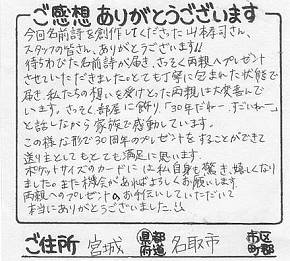 ご感想 ありがとうございます
今回名前詩を創作してくださった山本寿司さん、
スタッフの皆さん、ありがとうございます!!
待ちわびた名前詩が届き、さっそく両親へプレゼント
させていただきました。とても丁寧に包まれた状態で
届き、私たちの想いを受けとった両親は大変喜んで
います。さっそく、部屋に飾り「30年だねー、すごいねー」
と話しながら家族で感動しています。
この様な形で30周年のプレゼントをすることができて
送り主としてもとても満足に思います。
ポケットサイズのカードには私自身も驚き、嬉しくなり
ました。また機会があればよろしくお願いします。
両親へのプレゼントのお手伝いしていただいて
本当にありがとうございました。
ご住所 宮城 都道府県 名取市 市区町郡